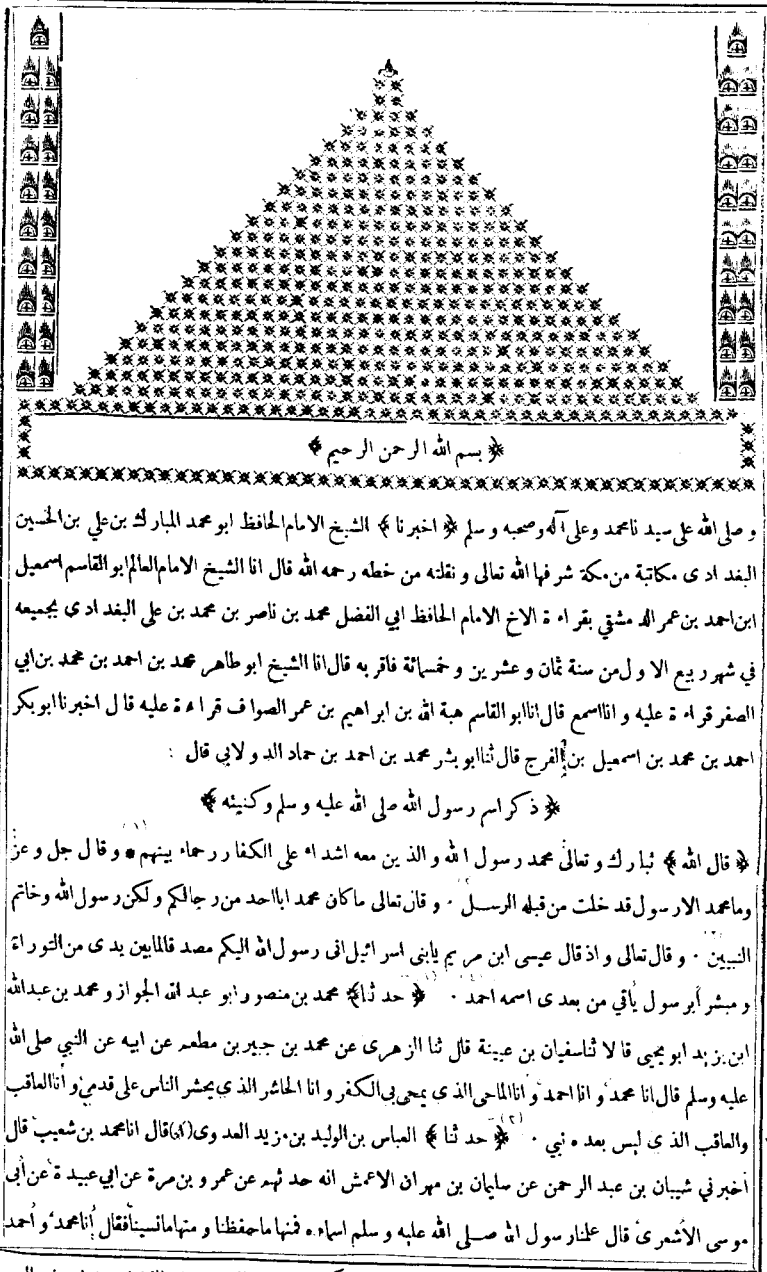 ﴿ بسم الله الرحمن الرحيم ﴾
و صلى الله على سيد نا محمد وعلى آله وصحبه و سلم ﴿ اخبرنا ﴾ الشيخ الامام الحافظ ابو محمد المبارك بن علي بن الحسين
البغدادى مكاتبة من مكة شرفها الله تعالى و نقلته من خطه رحمه الله قال انا الشيخ الامام العالم ابو القاسم اسمعيل
ابن احمد بن عمر الدمشقي بقراءة الاخ الامام الحافظ ابي الفضل محمد بن ناصر بن محمد بن على البغدادى بجميعه
في شهر ربيع الاول من سنة ثمان و عشرين و خمسمائة فاقر به قال انا الشيخ ابو طاهر محمد بن احمد بن محمد بن ابي
الصقر قراءة عليه و انا اسمع قال انا ابو القاسم هبة الله بن ابراهيم بن عمر الصواف قراءة عليه قال اخبرنا ابو بكر
احمد بن محمد بن اسمعيل بن الفرج قال ثنا ابو بشر محمد بن احمد بن حماد الدولابي قال :
﴿ ذكر اسم رسول الله صلى الله عليه و سلم وكنيته ﴾
﴿ قال الله ﴾ تبارك و تعالى محمد رسول الله و الذين معه اشداء على الكفار رحماء بينهم (١) * و قال جل و عز
وما محمد الا رسول قد خلت من قبله الرسل . و قال تعالى ما كان محمد ابا احد من رجالكم و لكن رسول الله وخاتم
النبيين . و قال تعالى و اذ قال عيسى ابن مريم يا بنى اسرائيل انى رسول الله اليكم مصدقا لما بين يدى من التوراة
و مبشرا برسول يأتي من بعدى اسمه احمد . ﴿ حدثنا ﴾ محمد بن منصور ابو عبد الله الجواز و محمد بن عبد الله
ابن يزيد ابو يحيى قالا ثنا سفيان بن عيينة قال ثنا الزهرى عن محمد بن جبير بن مطعم عن ابيه عن النبي صلى الله
عليه وسلم قال انا محمد و انا احمد و انا الماحى الذى يمحى بي الكفر و انا الحاشر الذى يحشر الناس على قدمي و أنا العاقب
والعاقب الذى ليس بعده نبي . (٢) ﴿ حدثنا ﴾ العباس بن الوليد بن مزيد العدوى قال انا محمد بن شعيب قال
أخبرني شيبان بن عبد الرحمن عن سليمان بن مهران الاعمش انه حدثهم عن عمرو بن مرة عن ابي عبيدة عن أبى
موسى الأشعرى قال علمنا رسول الله صلى الله عليه و سلم اسماءه فمنها ما حفظنا و منها ما نسينا فقال أنا محمد و أحمد